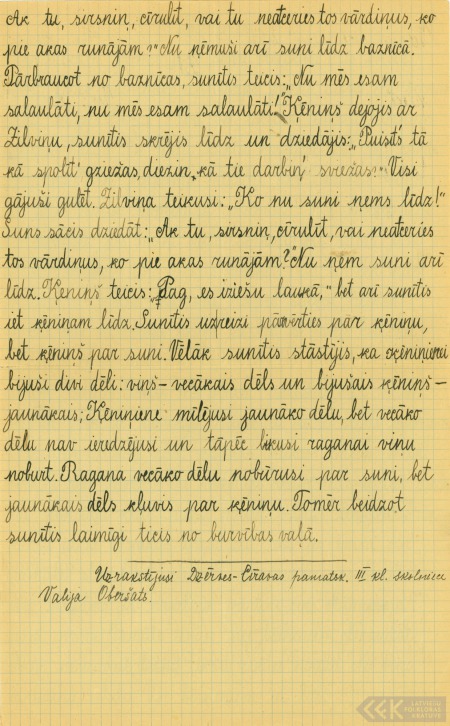 Ak tu, sirsniņ, cīrulīt, vai tu neatceries tos vārdiņus, ko
pie akas runājām?" Nu ņēmuši arī suni līdz baznīcā.
Pārbraucot no baznīcas, sunītis teicis: „Nu mēs esam
salaulāti, nu mēs esam salaulāti!" Ķēniņš dejojis ar
Zilviņu, sunītis skrējis līdz un dziedājis: „Puisīts tā
kā spolīt' gziežas, diezin, kā tie darbiņ' sviežas?" Visi
gājuši gulēt. Zilviņa teikusi: „Ko nu suni ņems līdz!"
Suns sācis dziedāt: „Ak tu, sirsniņ, cīrulīt, vai neatceries
tos vārdiņus, ko pie akas runājām?" Nu ņem suni arī
līdz. Ķēniņš teicis: „Pag, es iziešu laukā," bet arī sunītis
iet ķēniņam līdz. Sunītis uzreizi pārvērties par ķēniņu,
bet ķēniņš par suni. Vēlāk sunītis stāstījis, ka ķēniņienei
bijuši divi dēli: viņš – vecākais dēls un bijušais ķēniņš –
jaunākais; Ķēniņiene mīlējusi jaunāko dēlu, bet vecāko
dēlu nav ieredzējusi un tāpēc likusi raganai viņu
noburt. Ragana vecāko dēlu nobūrusi par suni, bet
jaunākais dēls kļuvis par ķēniņu. Tomēr beidzot
sunītis laimīgi ticis no burvības vaļā.
Uzrakstījusi Dzērves-Cīravas pamatsk. III kl. skolniece
Valija Oberšats.
LATVIEŠU
FOLKLORAS
KRĀTUVE